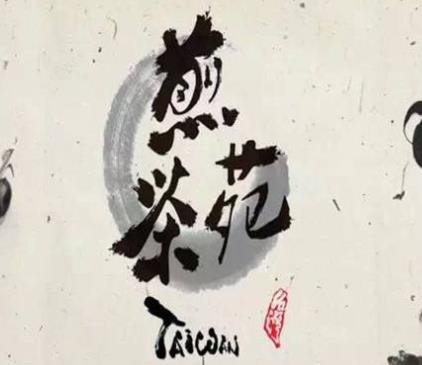 煎茶苑
TAIWAN
台灣